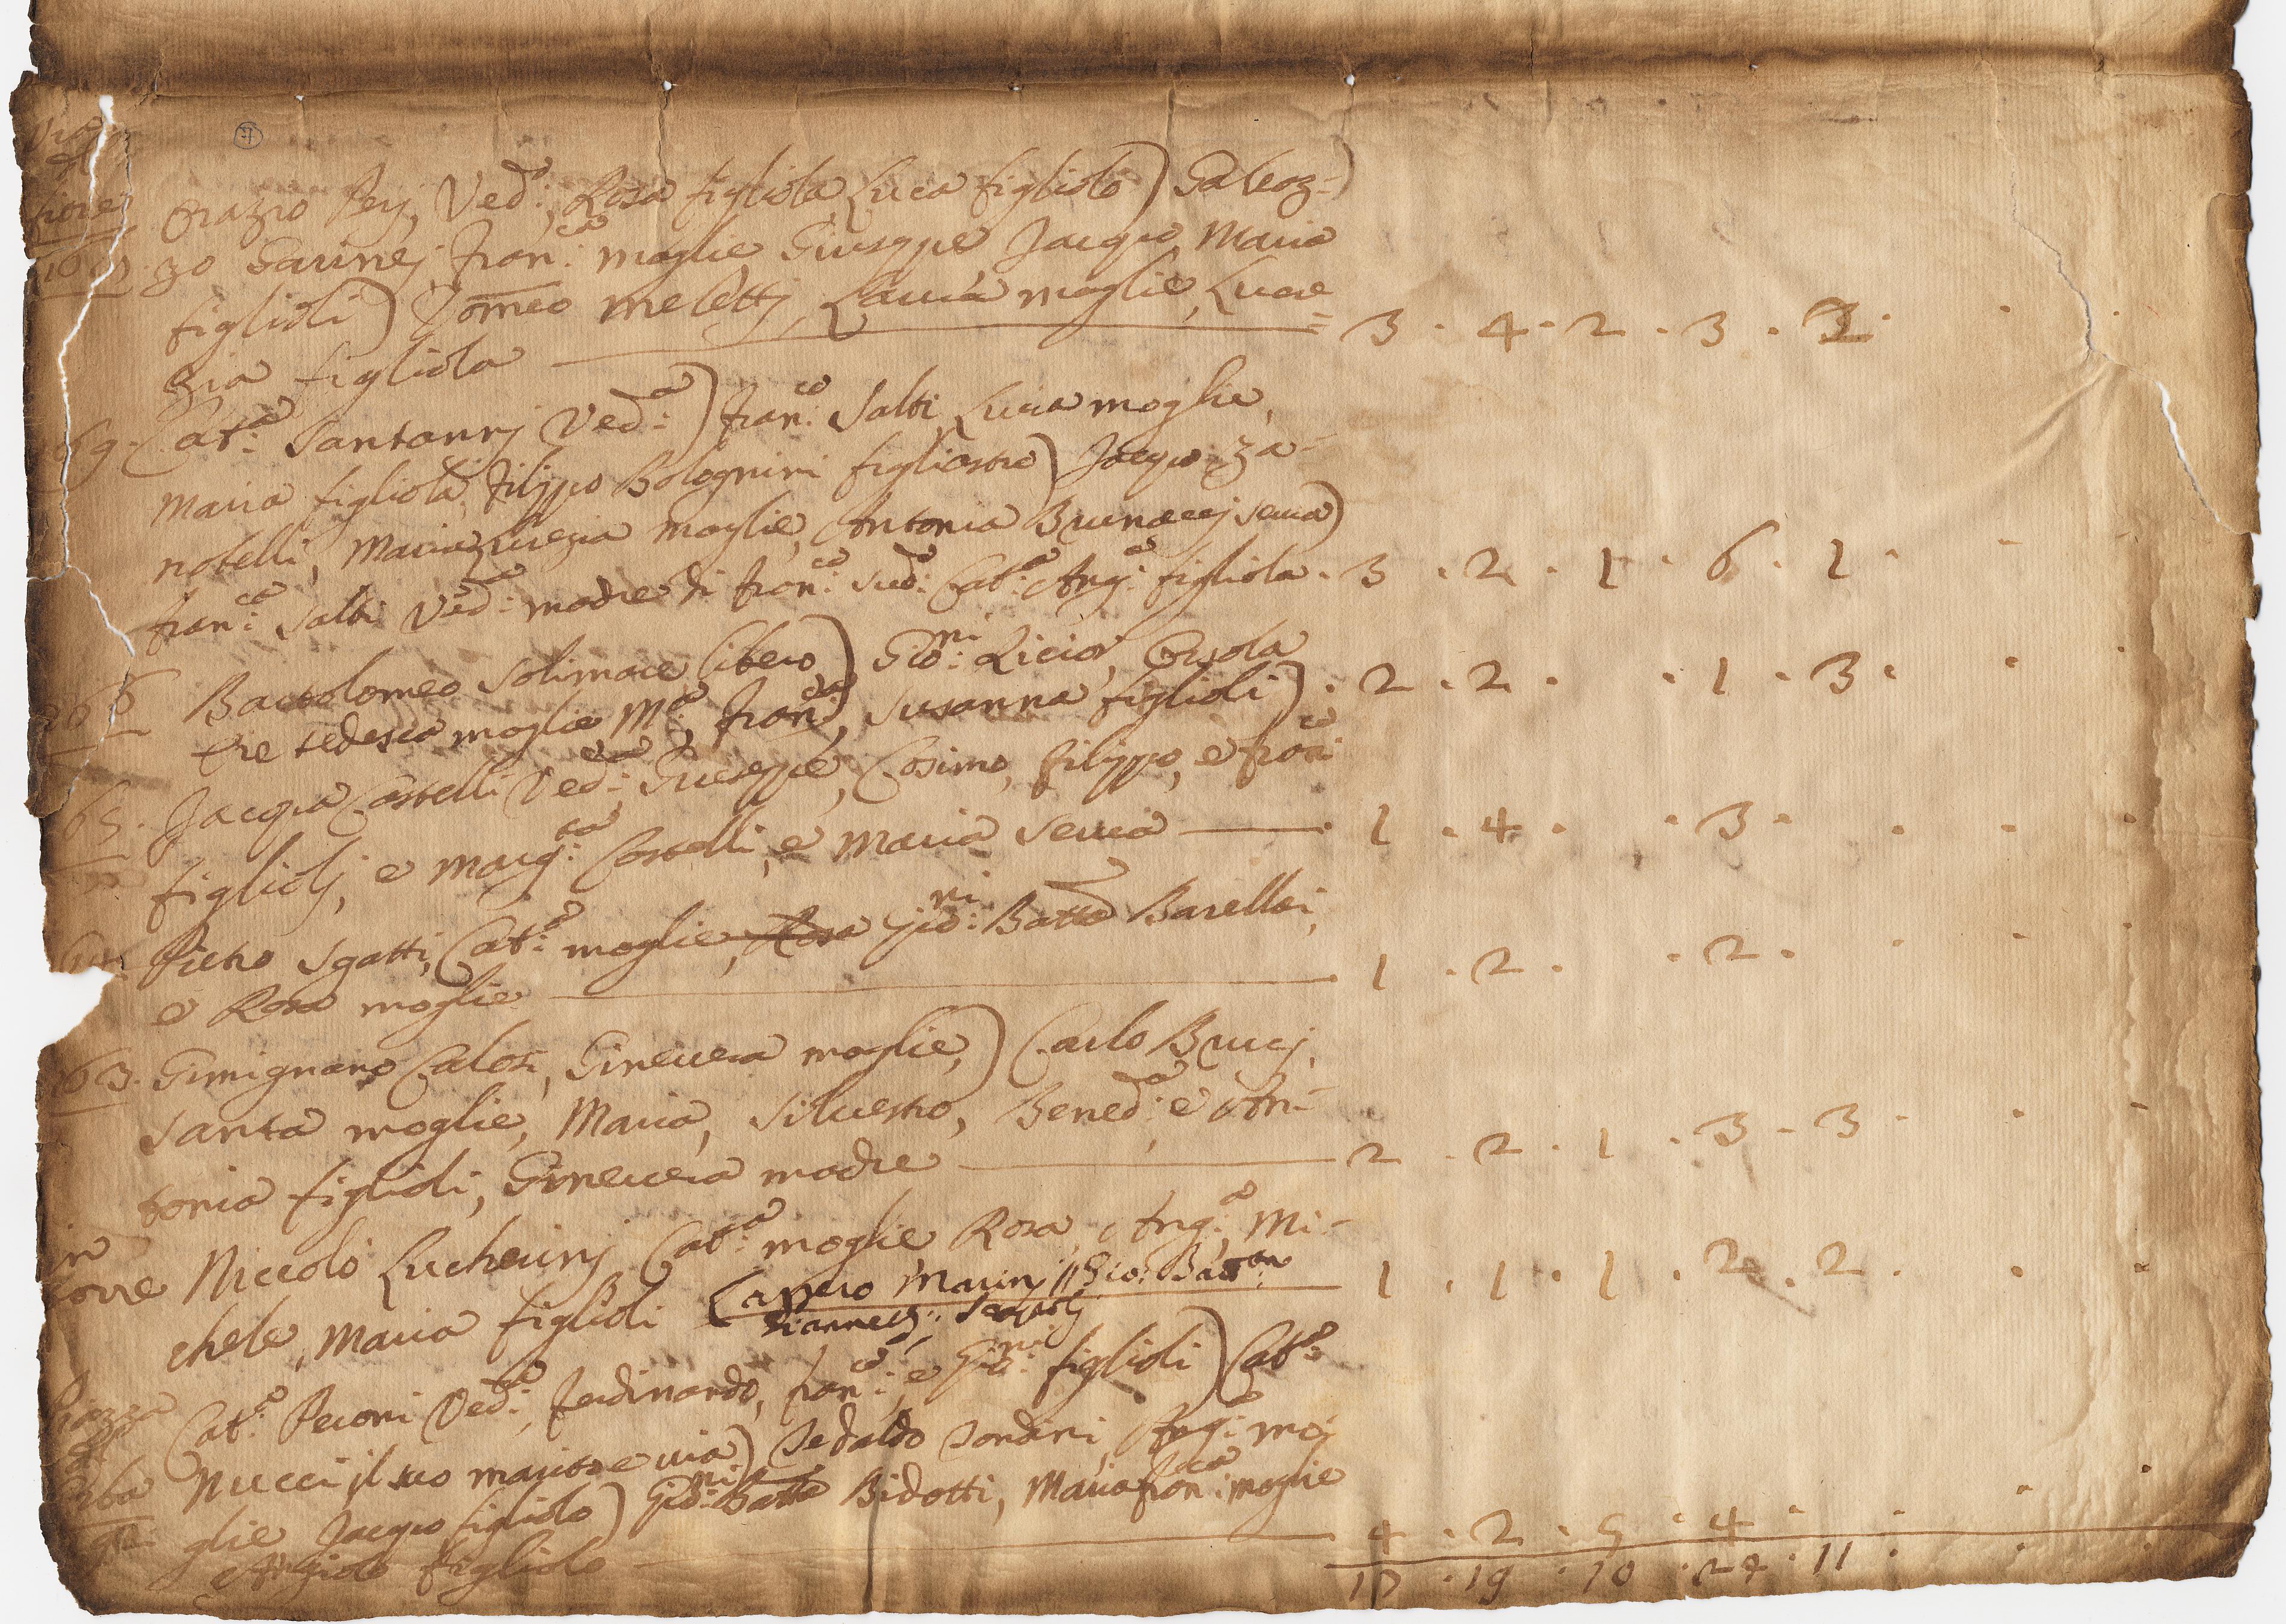 7
Via
del
fiore
Orazio Pej, Ved:o, Rosa figliola, Luca figliolo) Galeoz=)
zo Garinej, Fran:ca moglie Giuseppe Jacopo, Maria
figlioli) Tomeo Meletti, Laura moglie, Lucre
zia figliola = 3 . 4 . 2 . 3 . 3 .
69. Cat:a Santonnj Ved:a) Fran:co Salti, Lucia moglie,
Maria figliola, Filippo Bolognini figliastro) Jacopo Za-
notelli, Maria Lucrezia moglie, Antonia Brunaccj serva)
Fran:ca Salti Ved:a madre di Fran:co sud:o Cat:a Ang:a figliola . 3 . 2 . 1 . 6 . 1 .
66 Bartolomeo Solimare libero) Gio:ni Licior, Orsola
tre tedesca moglie, M:a, Fran:ca, Susanna figlioli) . 2 . 2 . . 1 . 3 .
65. Jacopa Castelli Ved:a, Giuseppe, Cosimo, Filippo, e Fran:co
figliolj, e Marg:ta Castelli, e Maria serva . 1 . 4 . . 3 .
64 Pietro Sgatti, Cat:a moglie, Rosa Gio:ni Batta Barellai,
e Rosa moglie . 1 . 2 . . 2 .
63. Gimignano Calosi, Ginevera moglie,) Carlo Buccj,
Santa moglie, Maria, Silvestro, Bened:a e An-
tonia figlioli, Ginevera madre 2 . 2 . 1 . 3 . 3 .
in
torre Niccolò Lucherinj Cat:a moglie Rosa, Ang:a Mi-
chele, Maria figlioli 1 . 1 . 1 . 2 . 2 .
Marinj Gio:
Piazza
Cat:a Peroni Ved:a, Ferdinando, Fran:co, e Gio:ni figlioli) Cat:a
Nucci il suo marito e via) Sedaldo Sondini, Ang:a mo-
glie Jacopo figliolo) Gio:ni Batta Bidotti, Maria Fran:ca moglie
Angiolo figliolo 4 . 2 . 5 . 4 .
17 . 19 . 10 . 24 . 11 .